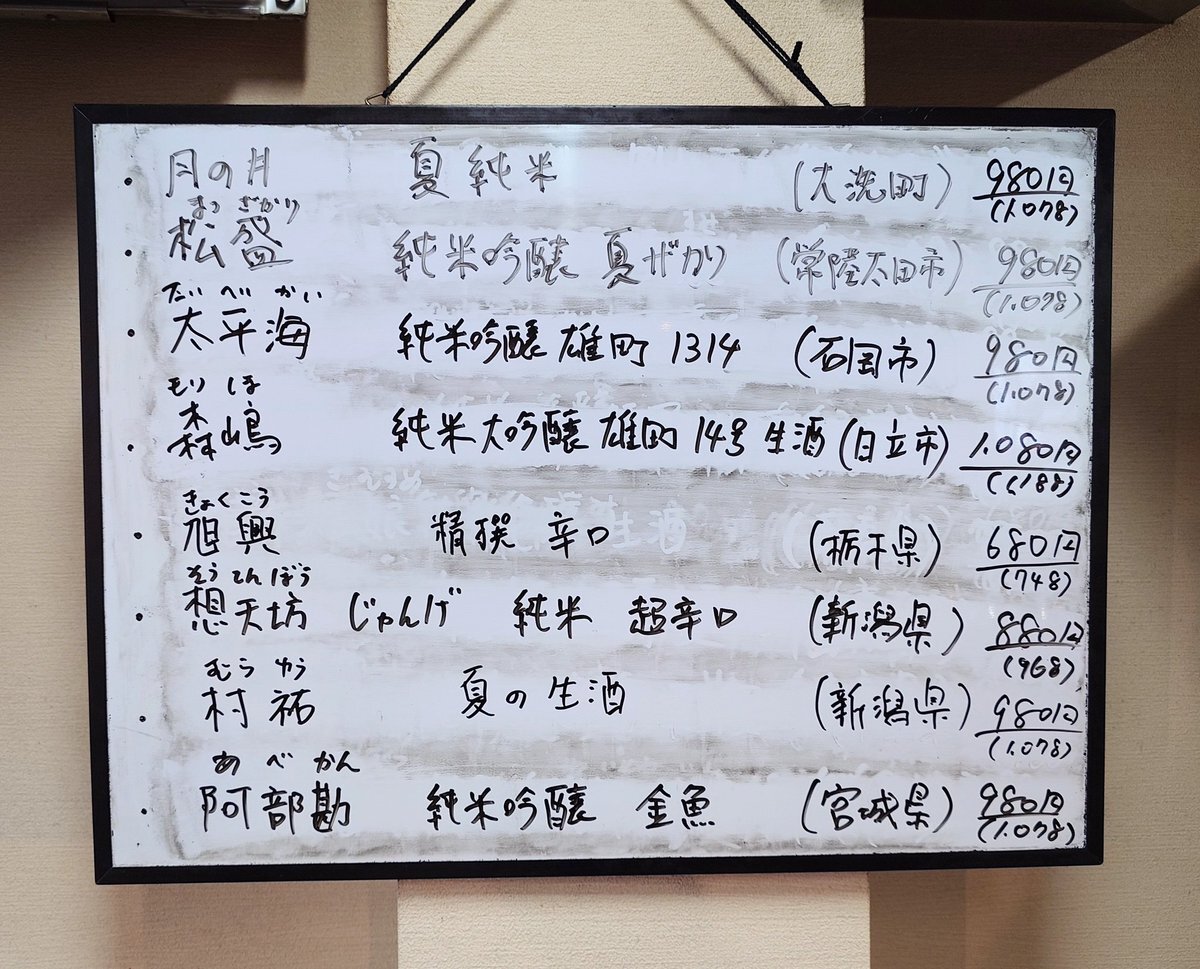 ・月の井 夏純米 (大洗町) 980円
(1.078)
まつざかり
・松盛 純米吟醸 夏ざかり (常陸太田市) 980円
(1.078)
たいへいかい
・太平海 純米吟醸 雄町 1314 (石岡市) 980円
(1.078)
もりしま
・森嶋 純米大吟醸 雄町 14号 生酒 (日立市) 1.080円
(1.188)
きょくこう
・旭興 精撰 辛口 (栃木県) 680円
(748)
そうてんぼう
・想天坊 じゃんげ 純米 超辛口 (新潟県) 880円
(968)
むらゆう
・村祐 夏の生酒 (新潟県) 980円
(1.078)
あべかん
・阿部勘 純米吟醸 金魚 (宮城県) 980円
(1.078)